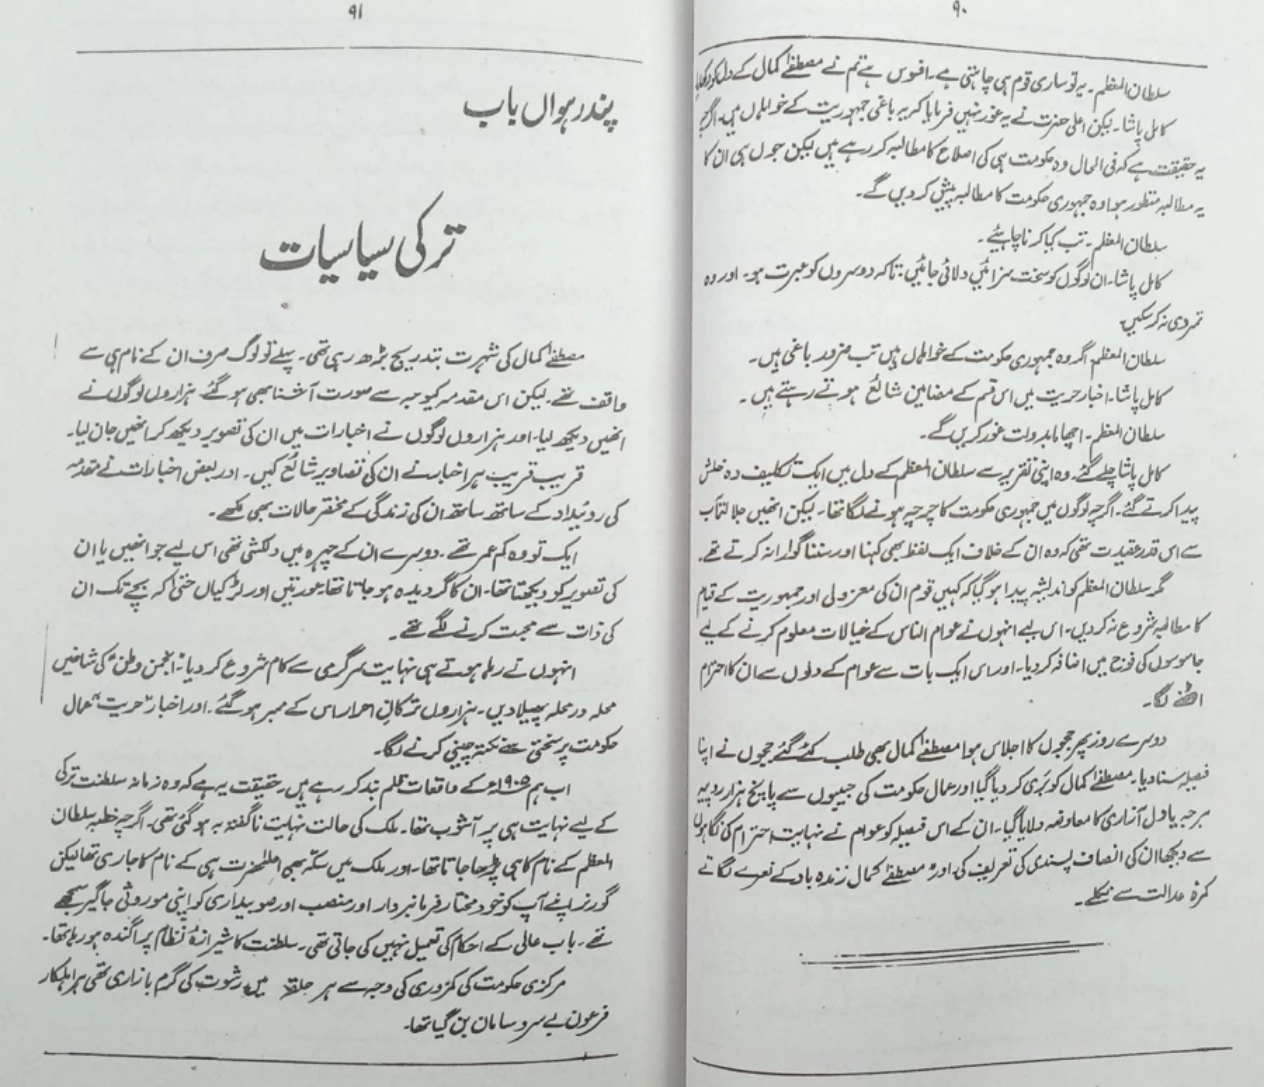 ۹۰
سلطان المعظم ۔ یہ تو ساری قوم ہی چاہتی ہے ۔ افسوس ہے تم نے مصطفےٰ کمال کے دل کو دکھایا
کامل پاشا ۔ لیکن اعلیٰ حضرت نے یہ غور نہیں فرمایا کہ یہ باغی جمہوریت کے خواہاں ہیں ۔ اگرچہ
یہ حقیقت ہے کہ فی الحال وہ حکومت ہی کی اصلاح کا مطالبہ کر رہے ہیں لیکن جوں ہی ان کا
یہ مطالبہ منظور ہوا وہ جمہوری حکومت کا مطالبہ پیش کر دیں گے ۔
سلطان المعظم ۔ تب کیا کرنا چاہئیے ۔
کامل پاشا ۔ ان لوگوں کو سخت سزائیں دلائی جائیں ۔ تاکہ دوسروں کو عبرت ہو ۔ اور وہ
تمردی نہ کر سکیں ۔
سلطان المعظم ۔ اگر وہ جمہوری حکومت کے خواہاں ہیں تب ضرور باغی ہیں ۔
کامل پاشا ۔ اخبار حریت میں اس قسم کے مضامین شائع ہوتے رہتے ہیں ۔
سلطان المعظم ۔ اچھا مابدولت غور کریں گے ۔
کامل پاشا چلے گئے ۔ وہ اپنی تقریر سے سلطان المعظم کے دل میں ایک تکلیف دہ خلش
پیدا کرتے گئے ۔ اگرچہ لوگوں میں جمہوری حکومت کا چرچہ ہونے لگا تھا ۔ لیکن انھیں جلالتمآب
سے اس قدر عقیدت تھی کہ وہ ان کے خلاف ایک لفظ بھی کہنا اور سننا گوارا نہ کرتے تھے ۔
مگر سلطان المعظم کو اندیشہ پیدا ہو گیا کہ کہیں قوم ان کی معزولی اور جمہوریت کے قیام
کا مطالبہ شروع نہ کر دیں ۔ اس لیے انہوں نے عوام الناس کے خیالات معلوم کرنے کے لیے
جاسوسوں کی فوج میں اضافہ کر دیا ۔ اور اس ایک بات سے عوام کے دلوں سے ان کا احترام
اٹھنے لگا ۔
دوسرے روز پھر ججوں کا اجلاس ہوا مصطفےٰ کمال بھی طلب کئے گئے ججوں نے اپنا
فیصلہ سنا دیا ۔ مصطفےٰ کمال کو بری کر دیا گیا اور عمال حکومت کی جیبوں سے پانچ ہزار روپیہ
ہرجہ یا دل آزاری کا معاوضہ دلایا گیا ۔ ان کے اس فیصلہ کو عوام نے نہایت احترام کی نگاہوں
سے دیکھا ان کی انصاف پسندی کی تعریف کی اور مصطفےٰ کمال زندہ باد کے نعرے لگاتے
کمرۂ عدالت سے نکلے ۔
۹۱
پندرہواں باب
ترکی سیاسیات
مصطفےٰ کمال کی شہرت بتدریج بڑھ رہی تھی ۔ پہلے تو لوگ صرف ان کے نام ہی سے
واقف تھے ۔ لیکن اس مقدمہ کیوجہ سے صورت آشنا بھی ہو گئے ۔ ہزاروں لوگوں نے
انھیں دیکھ لیا ۔ اور ہزاروں لوگوں نے اخبارات میں ان کی تصویر دیکھ کر انھیں جان لیا ۔
قریب قریب ہر اخبار نے ان کی تصاویر شائع کیں ۔ اور بعض اخبارات نے مقدمہ
کی روئیداد کے ساتھ ساتھ ان کی زندگی کے مختصر حالات بھی لکھے ۔
ایک تو وہ کم عمر تھے ۔ دوسرے ان کے چہرہ میں دلکشی تھی اس لیے جو انھیں یا ان
کی تصویر کو دیکھتا تھا ۔ ان کا گرویدہ ہو جاتا تھا عورتیں اور لڑکیاں حتیٰ کہ بچے تک ان
کی ذات سے محبت کرنے لگے تھے ۔
انہوں نے رہا ہوتے ہی نہایت سرگرمی سے کام شروع کر دیا ۔ انجمن وطن کی شاخیں
محلہ در محلہ پھیلا دیں ۔ ہزاروں ترکان احرار اس کے ممبر ہو گئے ۔ اور اخبار "حریت" عمال
حکومت پر سختی سے نکتہ چینی کرنے لگا ۔
اب ہم ۱۹۰۵ء کے واقعات قلم بند کر رہے ہیں ۔ حقیقت یہ ہے کہ وہ زمانہ سلطنت ترکی
کے لیے نہایت ہی پر آشوب تھا ۔ ملک کی حالت نہایت ناگفتہ بہ ہو گئی تھی ۔ اگرچہ خطبہ سلطان
المعظم کے نام کا ہی پڑھا جاتا تھا ۔ اور ملک میں سکہ بھی اعلٰحضرت ہی کے نام کا جاری تھا لیکن
گورنر اپنے آپ کو خود مختار فرمانبردار اور منصب اور صوبیداری کو اپنی موروثی جاگیر سمجھے
تھے ۔ باب عالی کے احکام کی تعمیل نہیں کی جاتی تھی ۔ سلطنت کا شیرازۂ نظام پراگندہ ہو رہا تھا ۔
مرکزی حکومت کی کمزوری کی وجہ سے ہر حلقہ میں رشوت کی گرم بازاری تھی ہر اہلکار
فرعون بے سر و سامان بن گیا تھا ۔